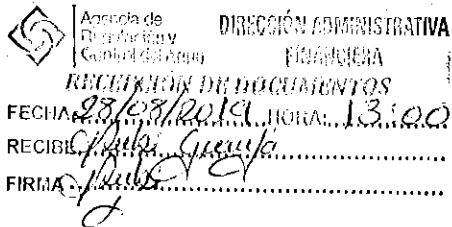 Agencia de
Regulación y
Control del Agua
DIRECCIÓN ADMINISTRATIVA
FINANCIERA
RECEPCIÓN DE DOCUMENTOS
FECHA 28/08/2019 HORA: 13:00
RECIBE
FIRMA